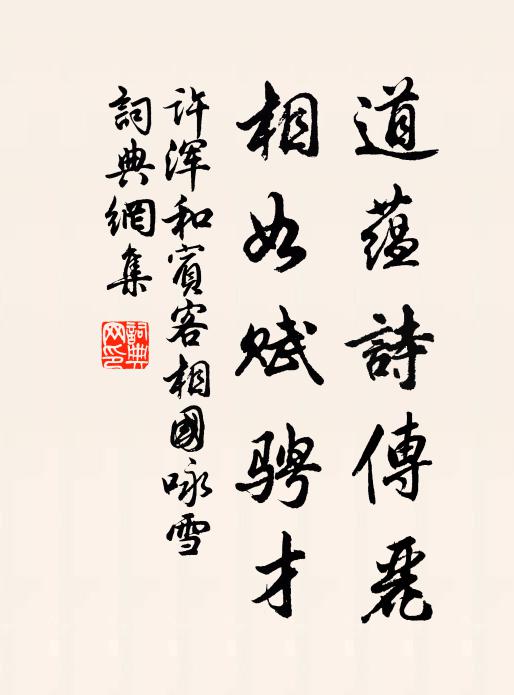 道蘊詩傳麗
相如赋骋才
许浑和賓客相國咏雪
詞典網集
詞典
网印